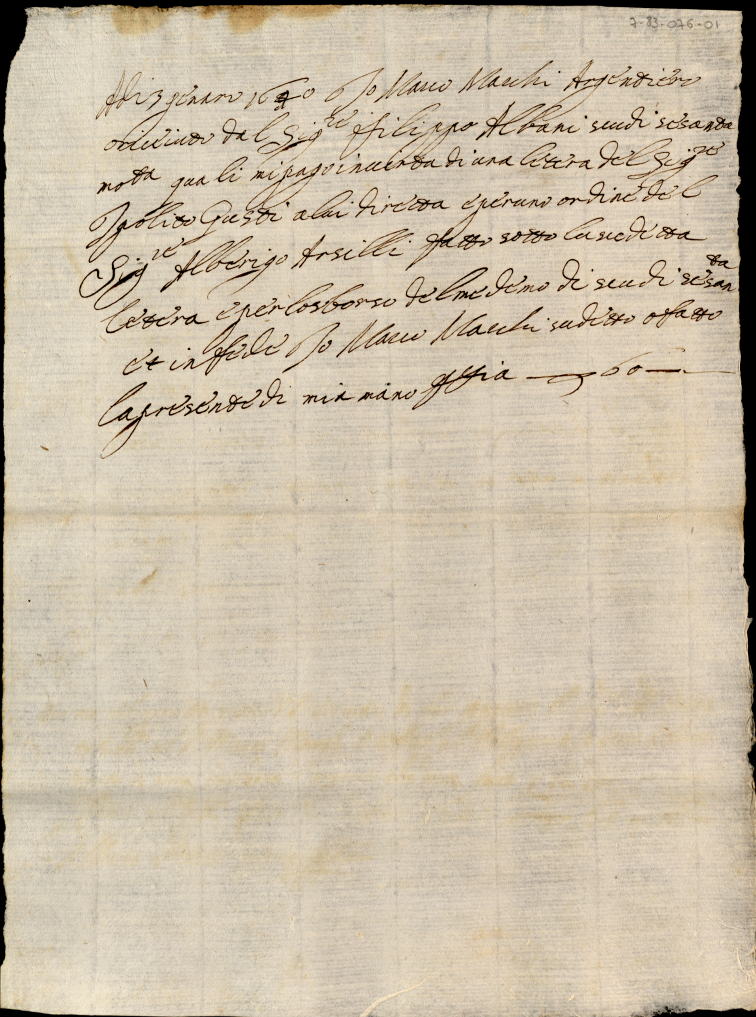 7-83-076-01
Adi 3 genaro 16 0 Io Marco Macchi Argentiero
o riceuto dal Sig.re filippo Albani scudi sesanta
mo.ta quali mi pago in uertu di una letera del Sig.re
Ipolito Giusti a lui diretta e per uno ordine del
Sig.re Alberigo Arsilli fatto sotto la sudetta
letera e per lo sborso del medemo di scudi sesan.ta
et in fede Io Marco Macchi suditto o fatto
la presente di mia mano 60